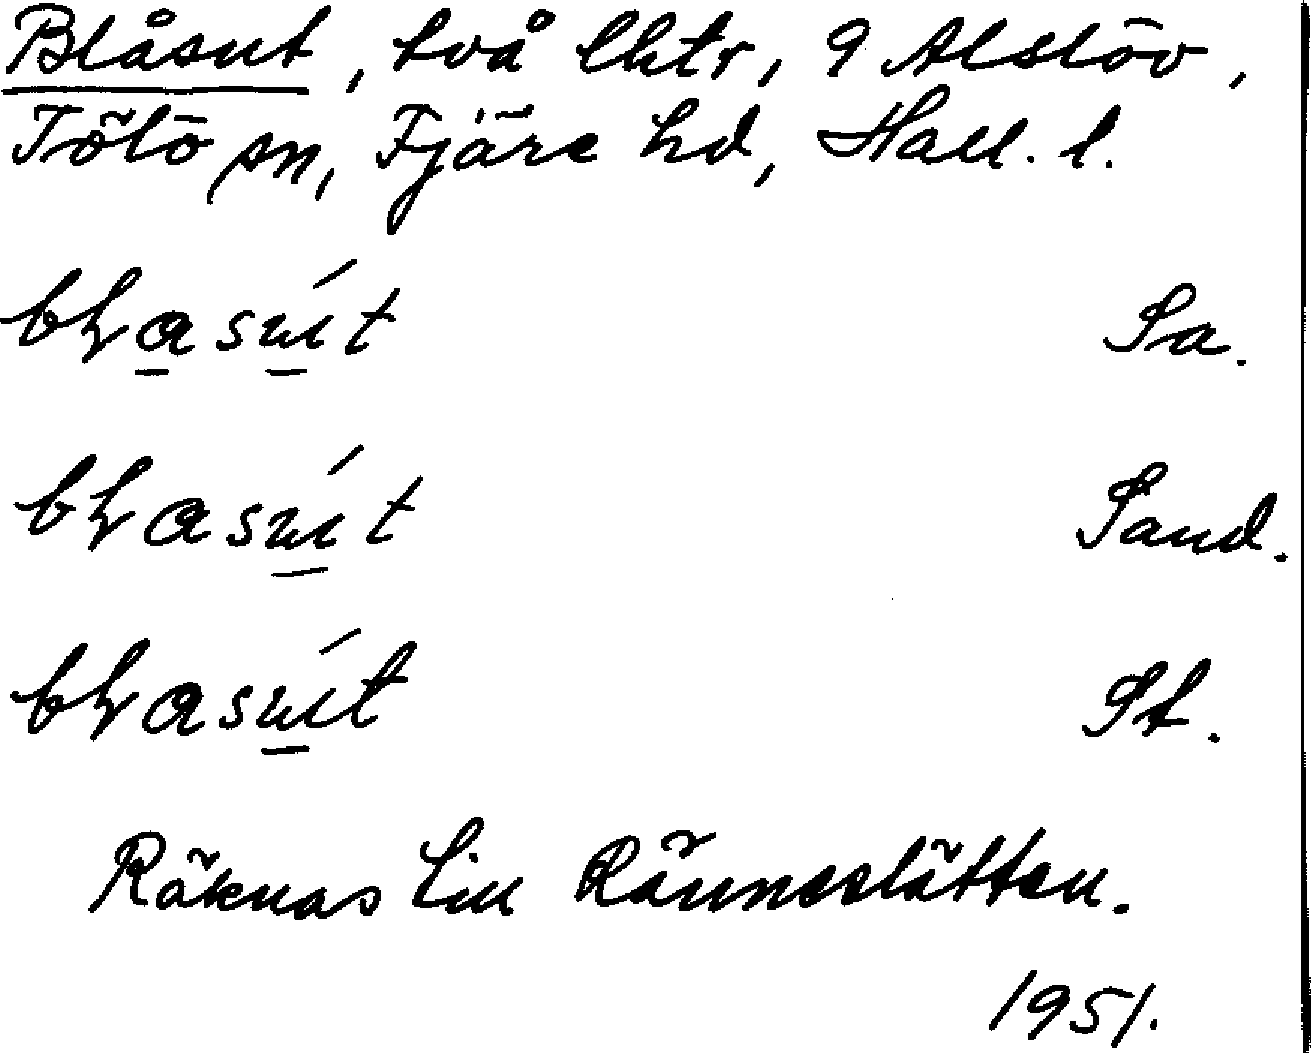 Blåsut, två lhtr, 9 Alslöv,
Tölö sn, Fjäre hd, Hall. l.
bɫasút Sa.
bɫasút Sand.
bɫasút St.
Räknas till Ränneslätten.
1951.